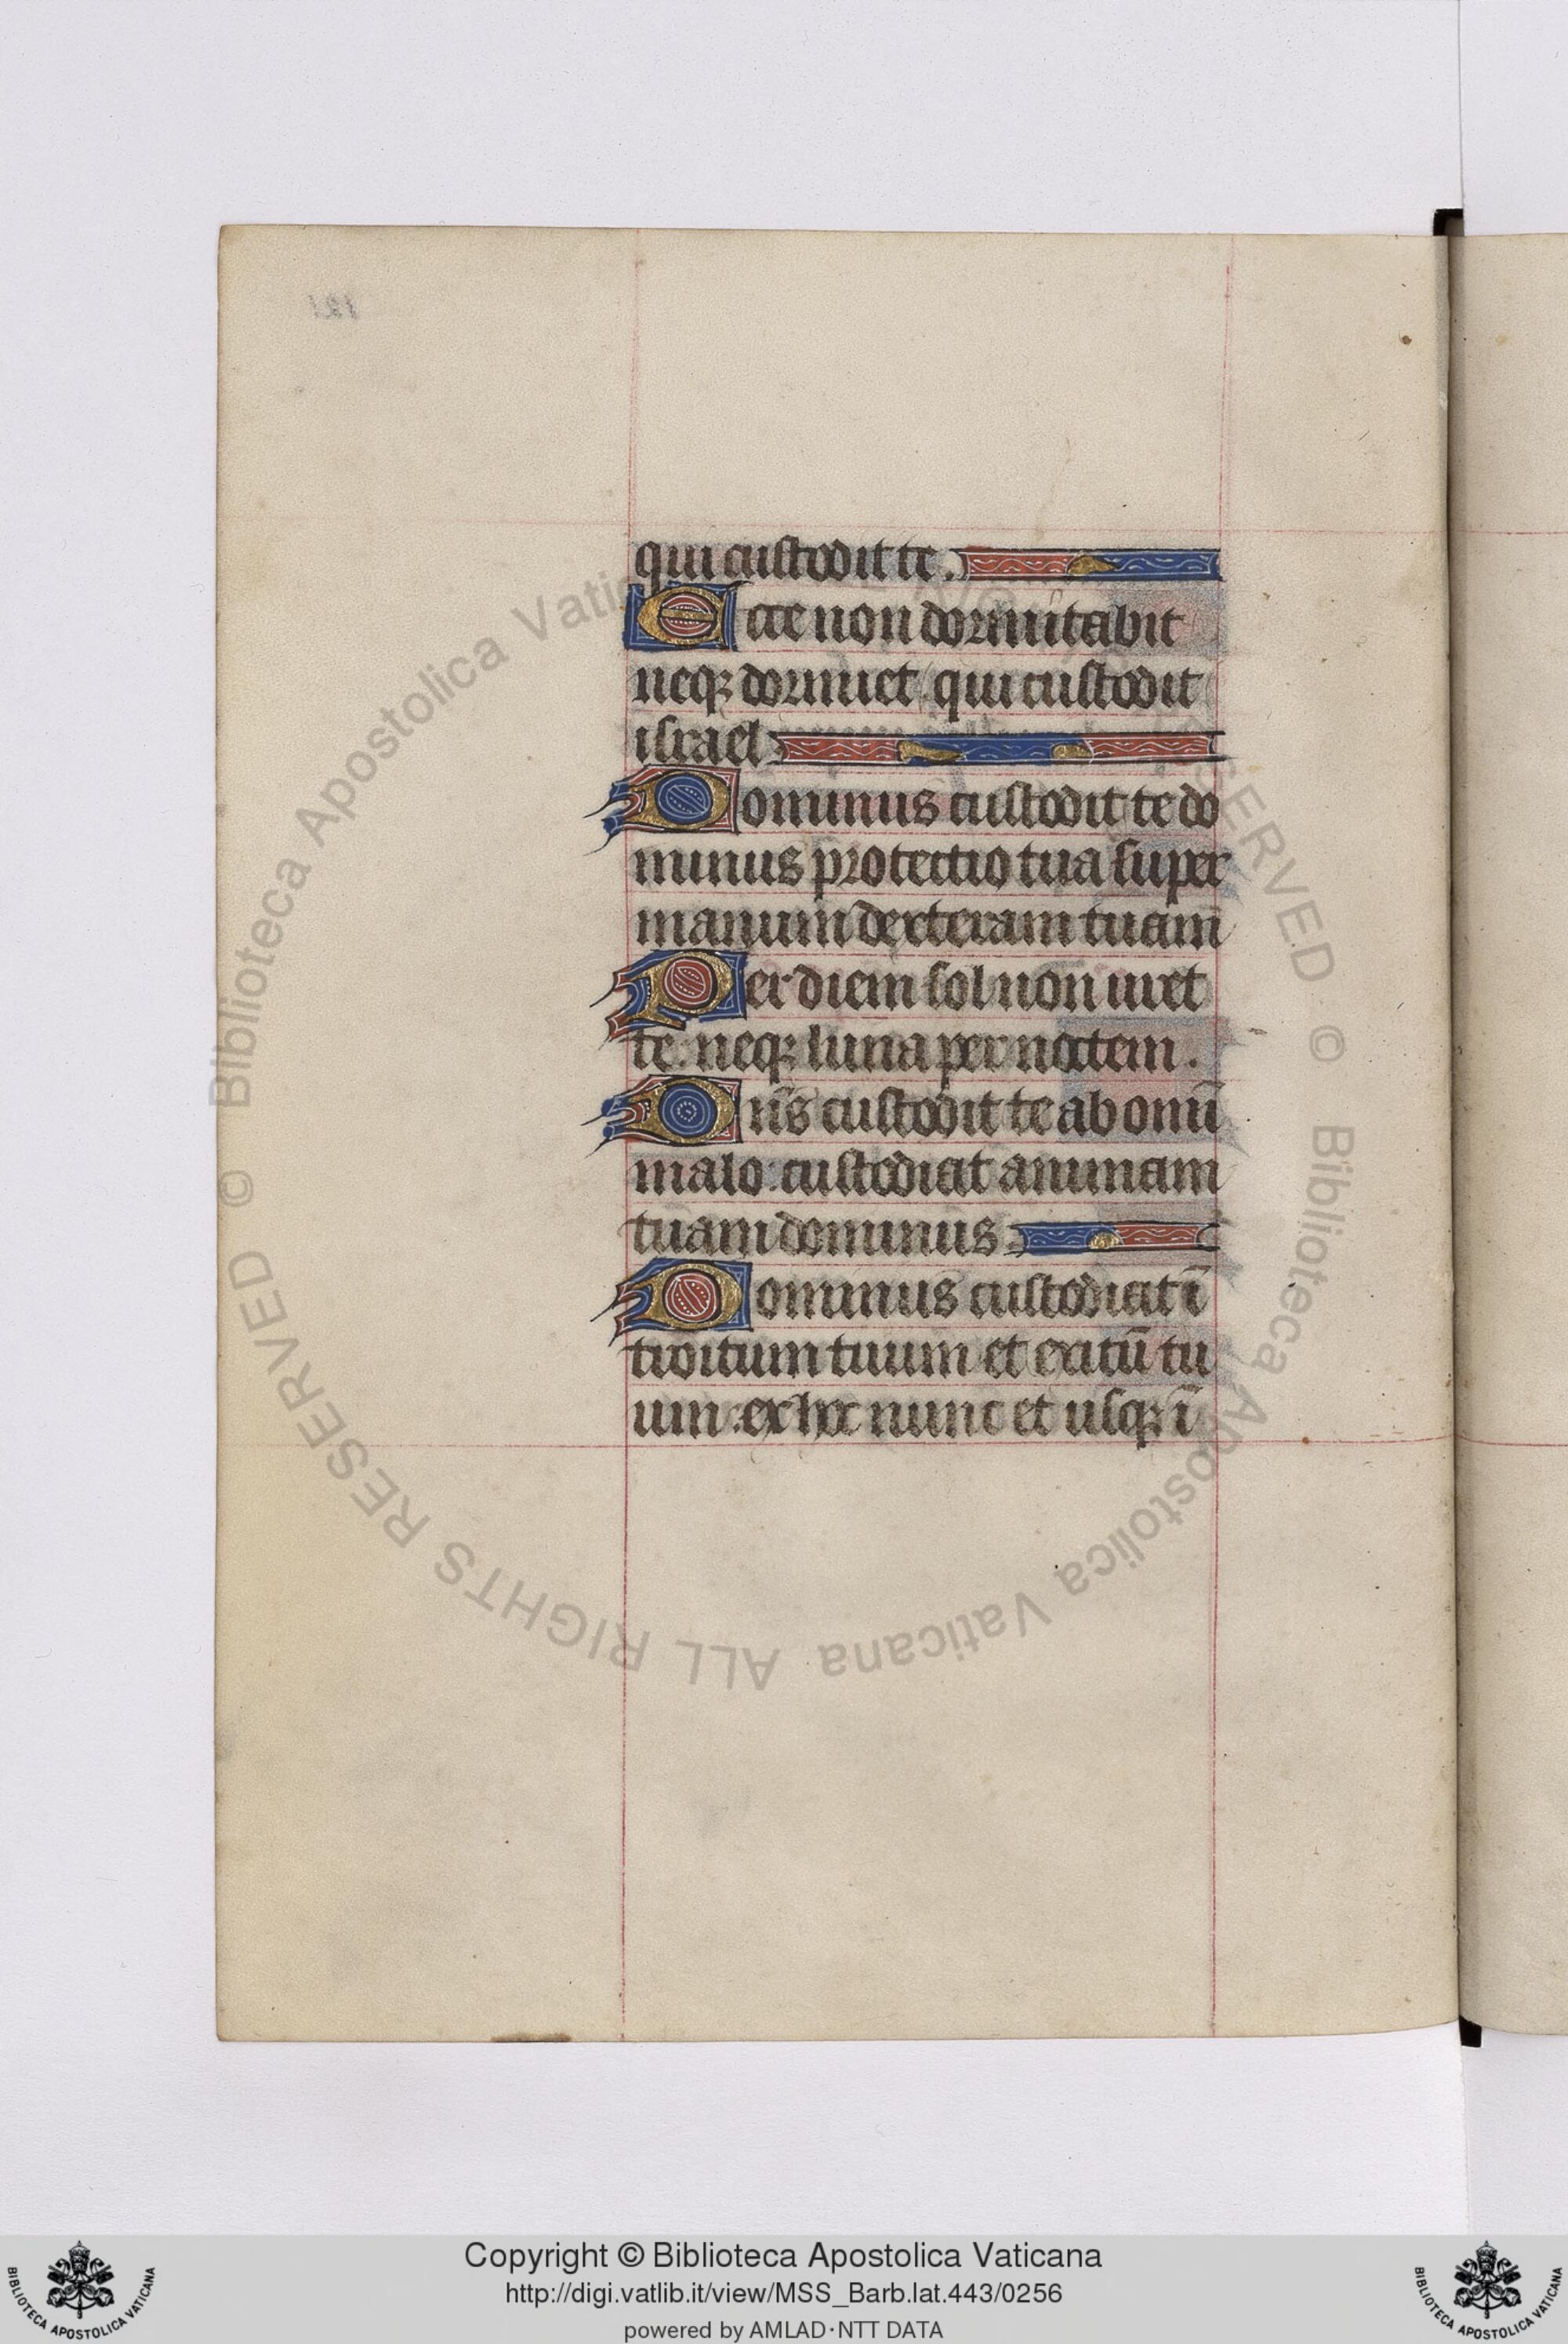 qui custodit te.
Ecce non dormitabit
neq; dormiet. qui custodit
israel
Dominus custodit te do
minus protectio tua super
manum dexteram tuam
Per diem sol non uret
te. neq; luna per noctem.
Dn̄s custodit te ab omī
malo: custodiat animam
tuam dominus.
Dominus custodiat ī
troitum tuum et exitū tu
um: ex hoc nunc et usq; ī
© Biblioteca Apostolica Vaticana ALL RIGHTS RESERVED © Biblioteca Apostolica Vaticana ALL RIGHTS RESERVED
Copyright © Biblioteca Apostolica Vaticana
http://digi.vatlib.it/view/MSS_Barb.lat.443/0256
powered by AMLAD·NTT DATA
BIBLIOTECA APOSTOLICA VATICANA
BIBLIOTECA APOSTOLICA VATICANA